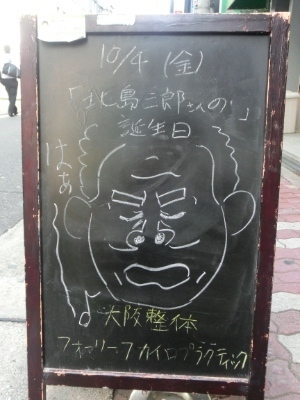 10/4 (金)
「北島三郎さんの」
誕生日
はぁ〜よ
大阪整体
フォーリーフカイロプラクティック